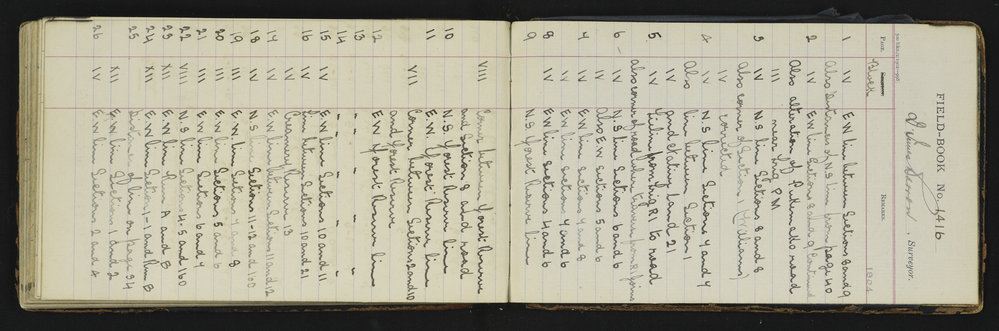 FIELD-BOOK No. 1416
Surveyor.
1904
PAGE. REMARKS.
Block
1 IV E.W line between Sections 8 and 9
Also balance of N.S line from page 40
2 IV E.W line Sections 8 and 9 Continued
Also alteration of Akatarawa road
III near Trig P M
3 IV N.S line Sections 8 and 8
Also corner of Section 1
IV corrected
4 IV N S line Sections 4 and 4
Also line between Section 1
and estate land 21
5. IV Tielin from trig R1 to road
also corner of road
6 - IV N.S line Sections 6 and 6
Also E W Sections 5 and 6
4 IV E.W line sections 4 and 8
IV E W line sections 4 and 6
8 IV E W line sections 4 and 6
9 IV N.S Forest Reserve line
VIII Corner between Forest Reserve
and Section 8 and road
10 N.S Forest Reserve line
11 E.W Forest Reserve line
VII Corner between Sections 2 and 10
and Forest Reserve
12 E W Forest Reserve line
13 " " " "
14 " " " "
15 IV E W line Sections 10 and 11
16 IV line between Sections 10 and 21
Cemetery Reserve 13
17 IV E W line between Sections 11 and 12
18 IV N S Sections 11-12 and 100
19 III E.W line Sections 7 and 8
20 III E W line Sections 5 and 6
21 III E.W line Sections 6 and 7
22 VIII N.S line Sections 4.5 and 160
23 XII E W line A and B
24 XII E W line Section 1-1 and line B
25 Section of line on page 34
XII E W line Sections 1 and 2
26 IV E.W line Sections 2 and 4